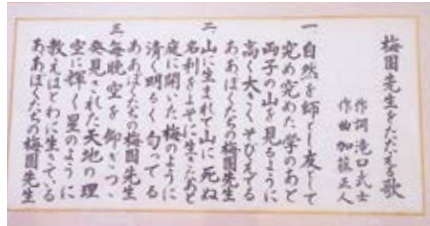 梅園先生をたたえる歌
作詞 滝口武士
作曲 加藤正人
一 自然を師とし友として
究め究めた学のあと
両子の山を見るように
高く大きくそびえてる
ああぼくたちの梅園先生
二 山に生まれて山に死ぬ
名利をよそに生きたあと
庭に開いた梅のように
清く明るく匂ってる
ああぼくたちの梅園先生
三 毎晩空を仰ぎつゝ
発見された天地の理
空に輝く星のように
教えはとわに生きている
ああぼくたちの梅園先生